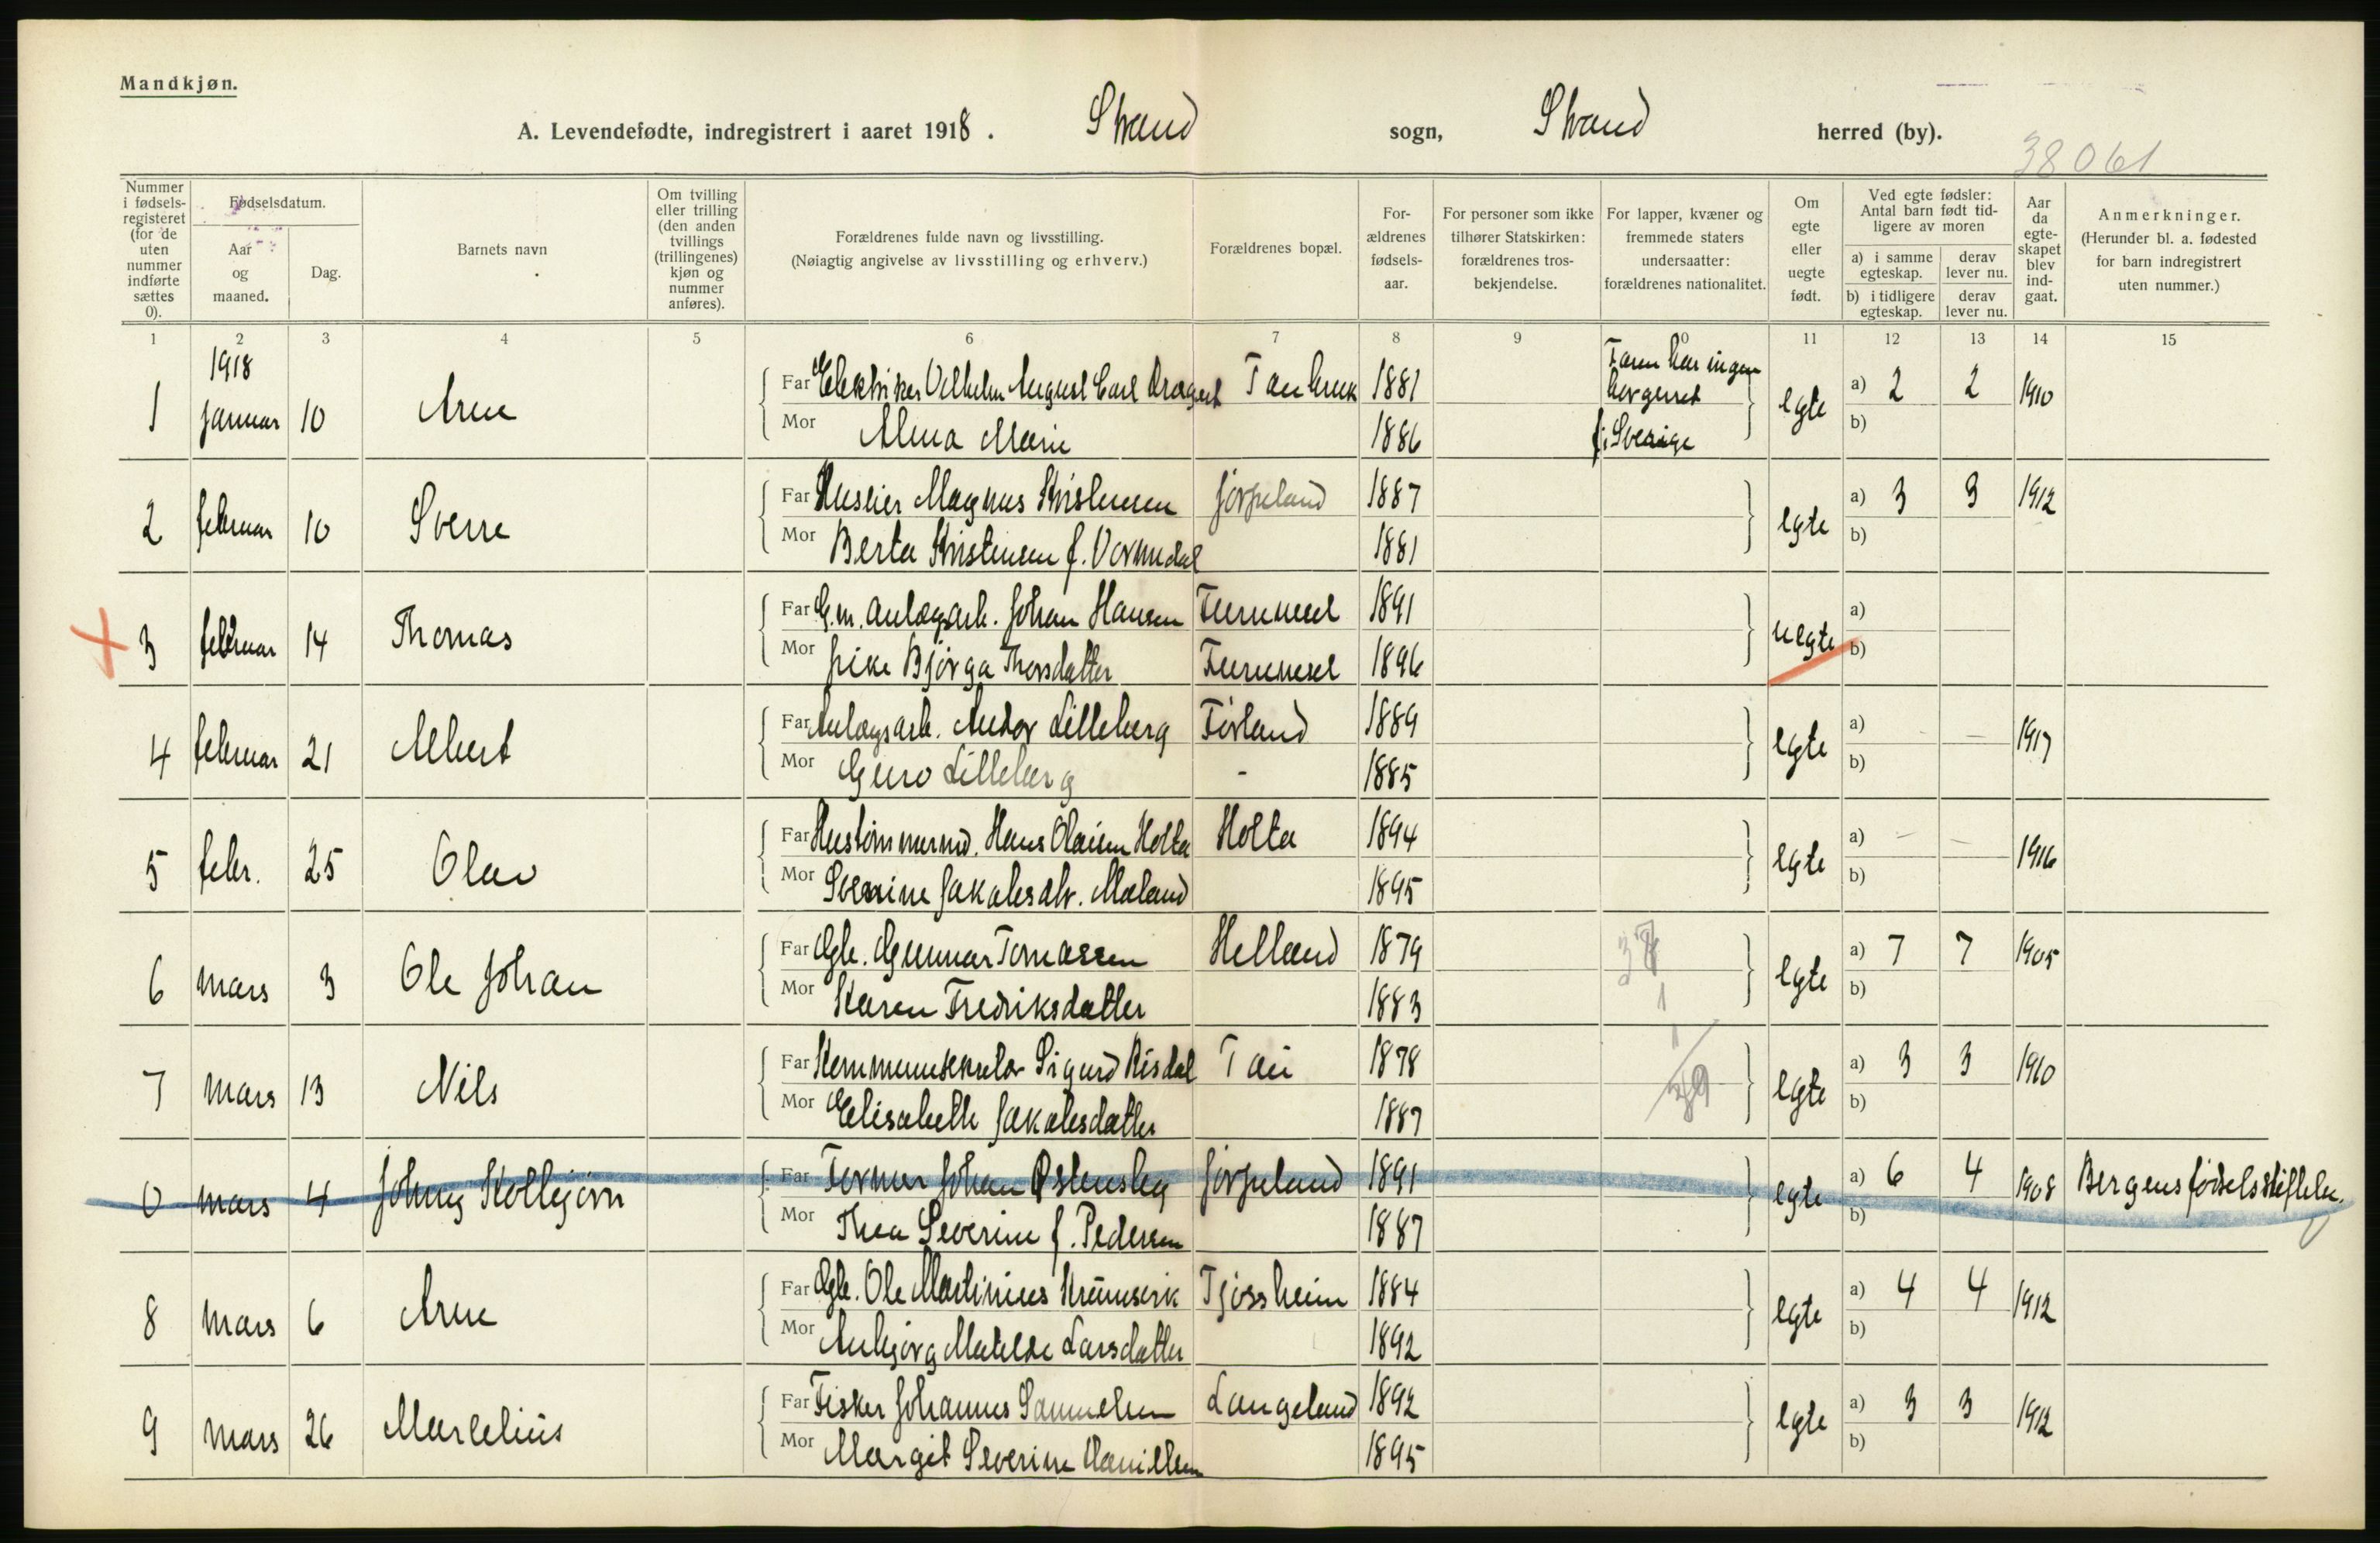 Mandkjøn.
A. Levendefødte, indregistrert i aaret 1918. Strand sogn, Strand herred (by).
38061
Nummer i fødselsregisteret (for de uten nummer indførte sættes 0).
Fødselsdatum.
Aar og maaned.
Dag.
Barnets navn
Om tvilling eller trilling (den anden tvillings (trillingenes) kjøn og nummer anføres).
Forældrenes fulde navn og livsstilling.
(Nøiagtig angivelse av livsstilling og erhverv.)
Forældrenes bopæl.
Forældrenes fødselsaar.
For personer som ikke tilhører Statskirken: forældrenes trosbekjendelse.
For lapper, kvæner og fremmede staters undersaatter: forældrenes nationalitet.
Om egte eller uegte født.
Ved egte fødsler: Antal barn født tidligere av moren
a) i samme egteskap. derav lever nu.
b) i tidligere egteskap. derav lever nu.
Aar da egteskapet blev indgaat.
Anmerkninger.
(Herunder bl. a. fødested for barn indregistrert uten nummer.)
1 2 3 4 5 6 7 8 9 10 11 12 13 14 15
1918
1 januar 10 Arne Far Elektriker Vilhelm August Carl Tau bruk 1881 Faren har ingen borgerret i Sverige egte a) 2 2 1910
Mor Alma Marie 1886 b)
2 februar 10 Sverre Far Magnus Kristensen Jørpeland 1887 egte a) 3 3 1912
Mor Berta Kristensen f. Vormedal 1881 b)
3 februar 14 Thomas Far G.m. anlægsarb. Johan Hansen 1891 uegte a)
Mor Pike Bjørga Thorsdatter 1896 b)
4 februar 21 Albert Far Anlægsarb. Andor Lilleberg Fisland 1889 egte a) - 1917
Mor Guro Lilleberg - 1885 b)
5 febr. 25 Olav Far Hustømmermd. Hans Olaisen Holta Holta 1894 egte a) - - 1916
Mor Severine Jakobsdtr. Mæland 1895 b)
6 mars 3 Ole Johan Far Gbr. Gunnar Tomassen Helland 1879 egte a) 7 7 1905
Mor Karen Fredriksdatter 1883 b)
7 mars 13 Nils Far Sigurd Risdal Tau 1878 egte a) 3 3 1910
Mor Elisabeth Jakobsdatter 1887 b)
0 mars 4 Johny Kolbjørn Far Former Johan Østensby Jørpeland 1891 egte a) 6 4 1908 Bergens fødselsstiftelse.
Mor Thea Severine f. Pedersen 1887 b)
8 mars 6 Arne Far Gbr. Ole Martinius Tjøssheim 1884 egte a) 4 4 1912
Mor Anbjørg Matilde Larsdatter 1892 b)
9 mars 26 Marselius Far Fisker Johannes Samuelsen Langeland 1892 egte a) 3 3 1912
Mor Margit Severine Danielsen 1895 b)